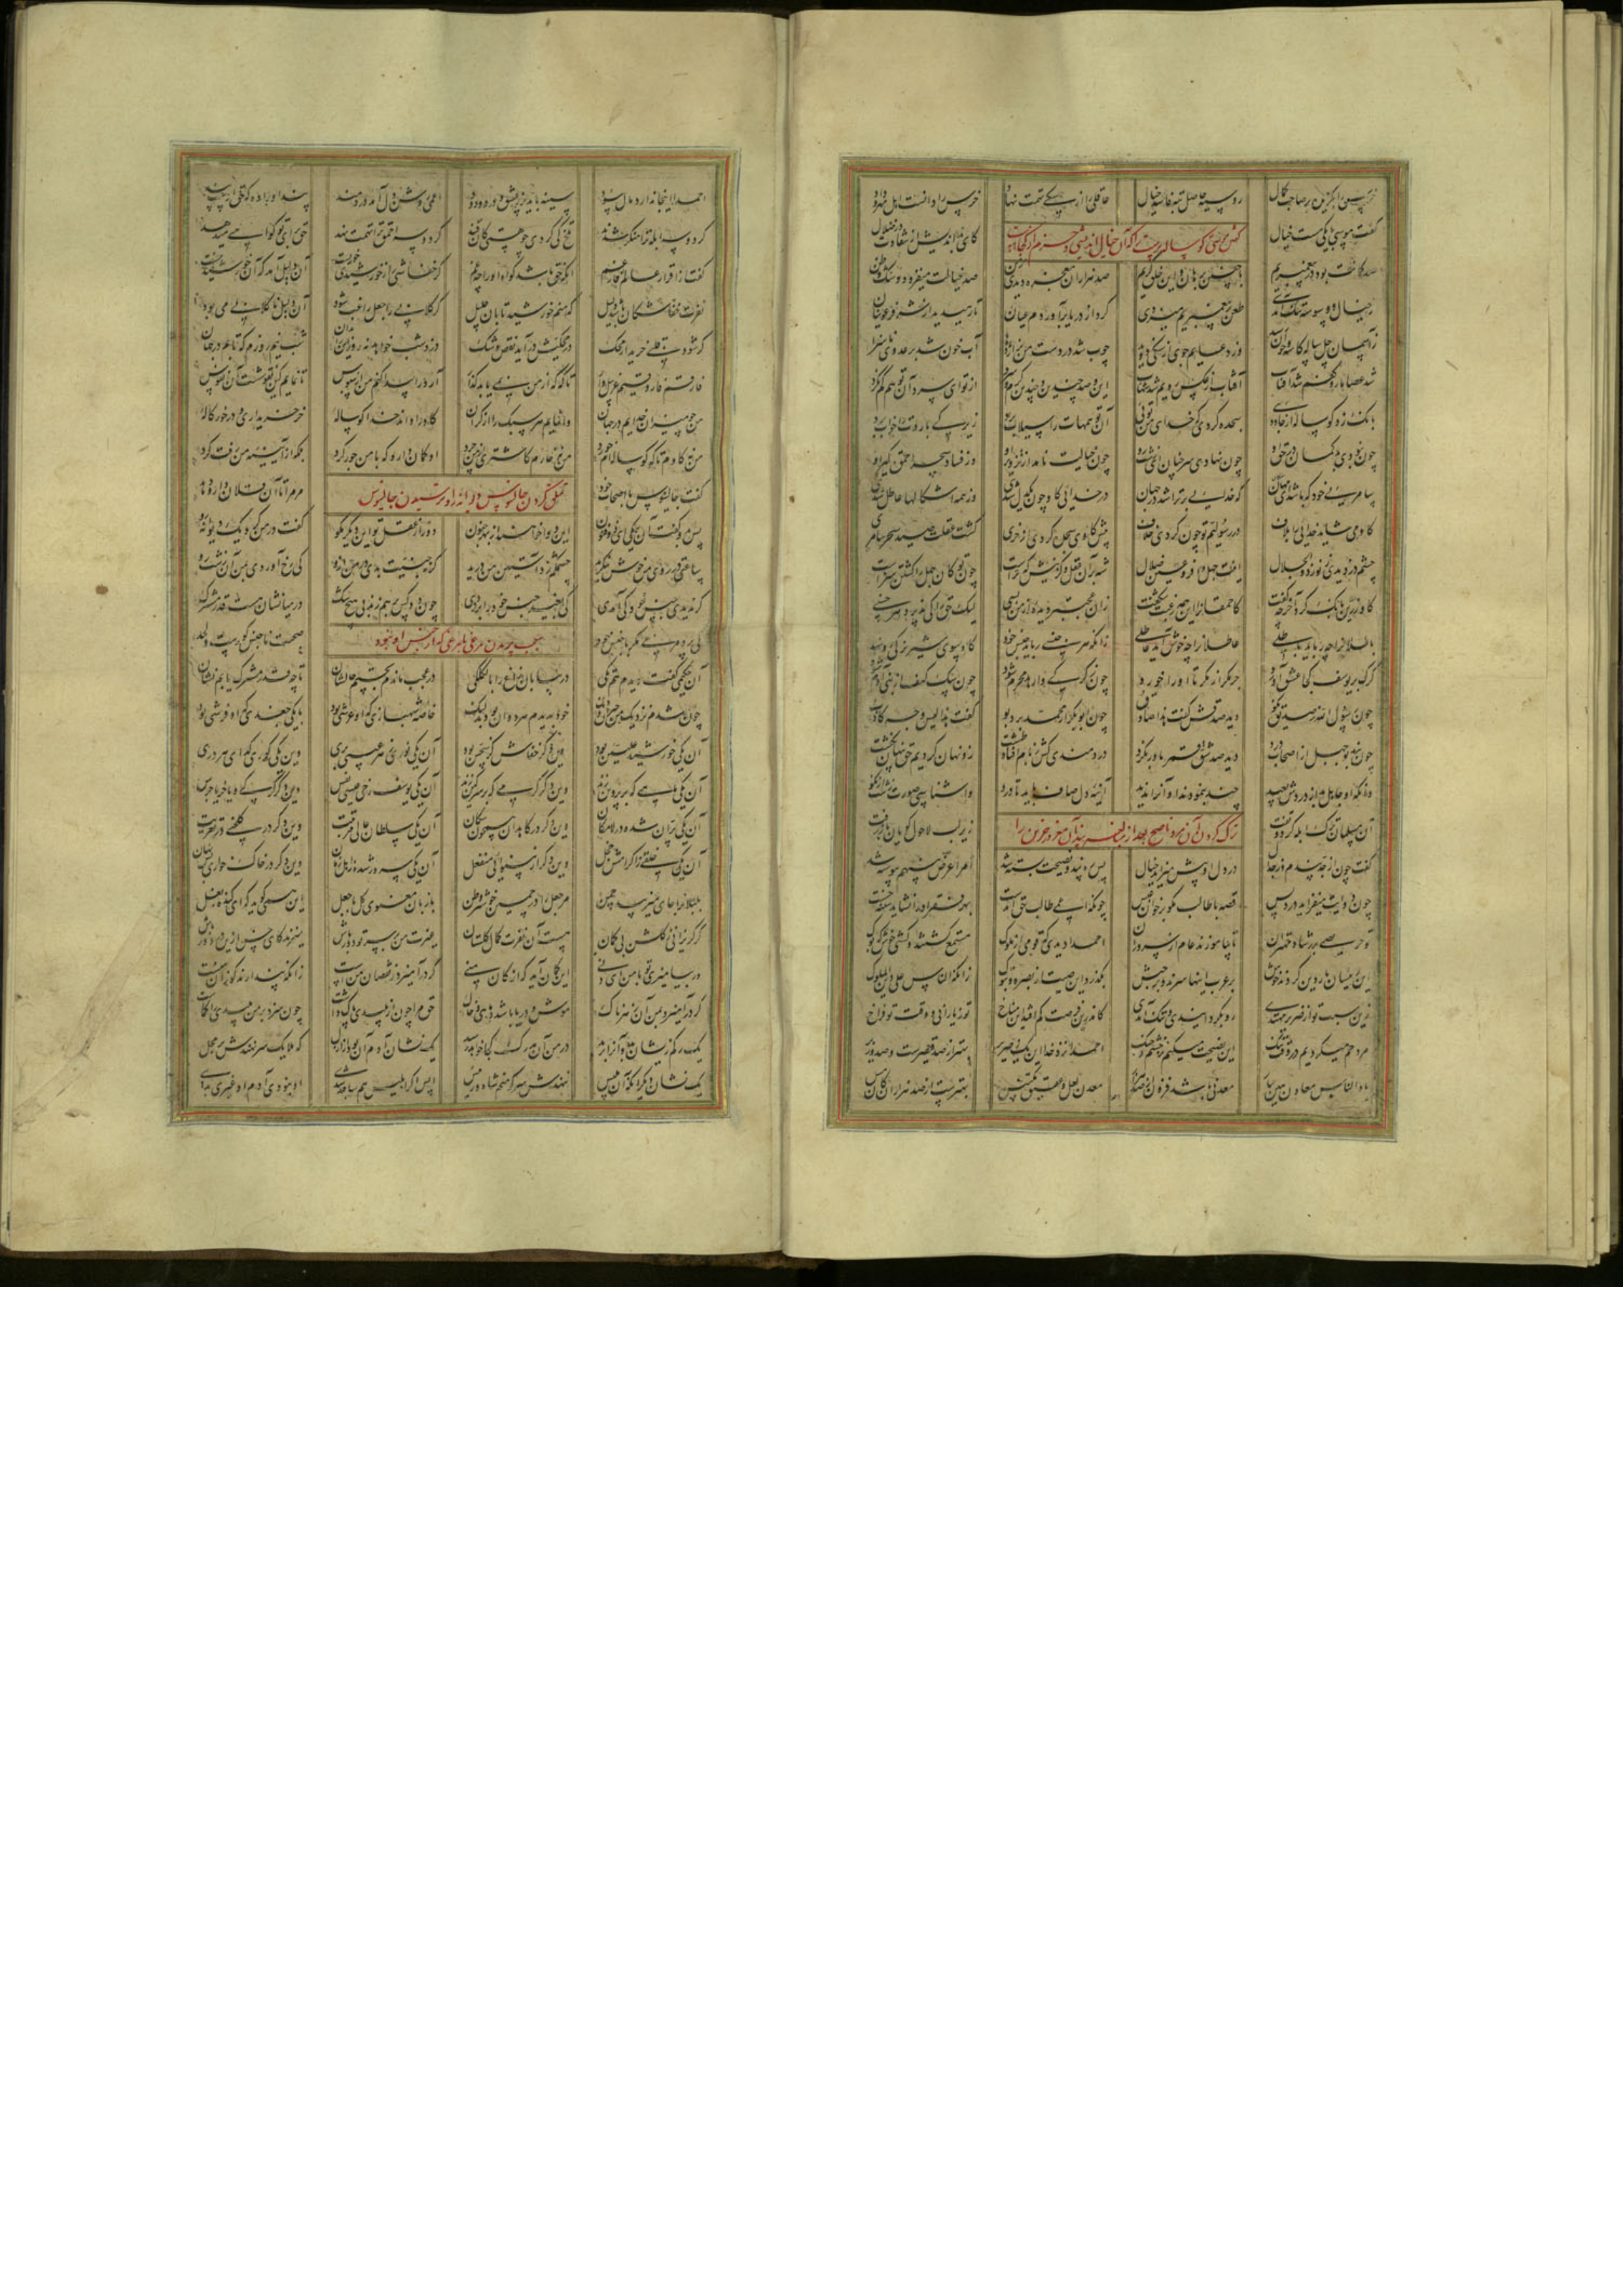 خرس را بگزین بر صاحب کمال رو سیه حاصل تبه فاسد خیال عاقلی را از سگی تهمت نهاد خرس را دانست اهل مهر و داد
گفتن موسی گوساله پرست را که آن خیال اندیشی و حزم تو کجاست
گفت موسی با یکی مست خیال کای بداندیش از شقاوت وز ضلال
صد گمانت بوده در پیغمبریم با چنین برهان و این خلق کریم صد هزاران معجزه دیدی ز من صد خیالت میفزود و شک و ظن
از خیال و وسوسه تنگ آمدی طعن بر پیغمبریم میزدی گرد از دریا برآوردم عیان تا رهیدید از شر فرعونیان
ز آسمان چل ساله کاسه و خوان رسید وز دعایم جوی از سنگی دوید چوب شد در دست من نر اژدها آب خون شد بر عدو ناسزا
شد عصا مار و کفم شد آفتاب آفتاب از عکس رویم شد شهاب این و صد چندین و چندین گرم و سرد از تو ای سرد آن توهم کم نکرد
بانگ زد گوساله از جادوی سجده کردی که خدای من توی آن توهمات را سیلاب برد زیرکی باردت را خواب برد
چون نبودی بدگمان در حق او چون نهادی سر چنان ای زشت رو چون خیالت نامد از تزویر او وز فساد سحر احمق گیر او
سامریی خود که باشد ای مهان که خدایی بر تراشد در جهان در خدایی گاو چون یکدل شدی وز همه اشکالها عاطل شدی
گاو می شاید خدایی را بلاف در رسولیم تو چون کردی خلاف پیش گاوی سجده کردی از خری گشت عقلت صید سحر سامری
چشم دزدیدی ز نور ذوالجلال اینت جهل وافر و عین ضلال شه بر آن عقل و گزینش که تراست چون تو کان جهل را کشتن سزاست
گاو زرین بانگ کرد آخر چه گفت کاحمقان را این همه رغبت شکفت زان عجبتر دیده اید از من بسی لیک حق را کی پذیرد هر خسی
باطلانرا چه رباید باطلی عاطلانرا چه خوش آید عاطلی زانکه هر جنسی رباید جنس خود گاو سوی شیر نر کی رو نهد
گرگ بر یوسف کجا عشق آورد جز مگر از مکر تا او را خورد چون ز گرگی وارهد محرم شود چون سگ کهف از بنی آدم شود
دید صدقش گفت هذا صادق چون ابوبکر از محمد برد بو گفت هذا لیس وجه کاذب
چون نبد بوجهل از اصحاب درد دید صد شق قمر باور نکرد دردمندی کش ز بام افتاد طشت زو نهان کردیم حق پنهان نگشت
وانکه او جاهل بد از دردش بعید چند بنمودند و او آنرا ندید آینه دل صاف باید تا درو وا شناسی صورت زشت از نکو
ترک کردن آن مرد ناصح بعد از مبالغه پند آن مغرور خرس را
آن مسلمان ترک ابله کرد و تفت زیر لب لاحول گویان باز رفت
گفت چون از جد پندم وز جدال در دل او بیش میزاید خیال پس ره پند و نصیحت بسته شد امر اعرض عنهم پیوسته شد
چون دوایت میفزاید درد پس قصه با طالب بگو برخوان عبس چونکه اعمی طالب حق آمدست بهر فقر او را نشاید سینه خست
تو حریصی بر رشاد مهتران تا بیاموزند عام از سروران احمدا دیدی که قومی از ملوک مستمع گشتند گشتی خوش که بوک
این رئیسان یار دین گردند خوش بر عرب اینها سرند و بر حبش بگذرد این صیت از بصره و تبوک زانکه الناس علی دین الملوک
زین سبب تو از ضریر مهتدی رو بگردانیدی و تنگ آمدی کاندرین فرصت کم افتد این مناخ تو ز یارانی و وقت تو فراخ
مزدحم میگردیم در وقت تنگ این نصیحت میکنم نز خشم و جنگ احمدا نزد خدا این یک ضریر بهتر از صد قیصرست و صد وزیر
یاد الناس معادن هین بیار معدنی باشد فزون از صد هزار معدن لعل و عقیق مکتنس بهترست از صد هزاران کان مس
احمدا اینجا ندارد مال سود سینه باید پر ز عشق و درد و دود اعمی روشن دل آمد در مبند پند او را ده که حق اوست پند
گر دو سه ابله ترا منکر شدند تلخ کی گردی چو هستی کان قند گر دو سه احمق ترا تهمت نهد حق برای تو گواهی میدهد
گفت از اقرار عالم فارغم آنکه حق باشد گواه او را چه غم گر خفاشی را ز خورشیدی خوریست آن دلیل آمد که آن خورشید نیست
نفرت خفاشکان باشد دلیل که منم خورشید تابان جلیل گر گلابی را جعل راغب شود آن دلیل ناگلابی می بود
گر شود قلبی خریدار محک در محکیش درآید نقص و شک دزد شب خواهد نه روز این را بدان شب نیم روزم که تابم در جهان
فارقم فاروقیم غربیل وار تا که که از من نمی یابد گذار آرد را پیدا کنم من از سبوس تا نمایم کین نقوشست آن نفوس
من چو میزان خدایم در جهان وانمایم هر سبک را از گران گاو را داند خدا گوساله خر خریداری و در خور کاله
من نه گاوم تا که گوساله ام خرد من نه خارم کاشتری از من چرد او گمان دارد که با من جور کرد بلکه از آیینه من رفت گرد
تملق کردن جالینوس دیوانه را و ترسیدن جالینوس
گفت جالینوس با اصحاب خود مر مرا تا آن فلان دارو دهد
پس بدو گفت آن یکی ای ذوفنون این دوا خواهند از بهر جنون دور از عقل تو این دیگر مگو گفت در من کرد یک دیوانه رو
ساعتی در روی من خوش بنگرید چشمکم زد آستین من درید گرنه جنسیت بدی در من ازو کی رخ آوردی بمن آن زشت رو
گر ندیدی جنس خود کی آمدی کی بغیر جنس خود را بر زدی چون دو کس بر هم زند بی هیچ شک در میانشان هست قدر مشترک
سبب پریدن مرغی با مرغی که از جنس او نبود
کی پرد مرغی مگر با جنس خود صحبت ناجنس گورست و لحد
آن حکیمی گفت دیدم هم تکی در بیابان زاغ را با لکلکی در عجب ماندم بجستم حالشان تا چه قدر مشترک یابم نشان
چون شدم نزدیک من حیران و دنگ خود بدیدم هر دوان بودند لنگ خاصه شهبازی که او عرشی بود با یکی جغدی که او فرشی بود
آن یکی خورشید علیین بود وین دگر خفاش کز سجین بود آن یکی نوری ز هر عیبی بری وین یکی کوری گدای هر دری
آن یکی ماهی که بر پروین زند وین دگر کرمی که بر سرگین زند آن یکی یوسف رخی عیسی نفس وین دگر گرگی و یا خر با جرس
آن یکی پران شده در لامکان وین دگر در کاهدان همچون سگان آن یکی سلطان عالی مرتبت وین دگر در گلخنی در تعزیت
آن یکی خلقی ز اکرامش خجل وین دگر از بینوایی منفعل آن یکی سرور شده ز اهل زمان وین دگر در خاک خواری بس نهان
بلبلانرا جای میزیبد چمن مر جعل را در چمین خوشتر وطن با زبان معنوی گل با جعل این همی گوید که ای گنده بغل
گر گریزانی ز گلشن بی گمان هست آن نفرت کمال گلستان غیرت من بر سر تو دورباش میزند کای خس ازین در دور باش
ور بیامیزی تو با من ای دنی این گمان آید که از کان منی گر در آمیزد ز نقصان منست زانکه پندارند کو ز آن منست
گر درآمیزد بمن آن زهرناک حق مرا چون از پلیدی پاک داشت چون سزد بر من پلیدی را گماشت
یک رگم زیشان بد و آنرا برید در من آن بدرگ کجا خواهد رسید یک نشان آدم آن بود از ازل که ملایک سر نهندش بر محل
یک نشان دیگر آنکه آن بلیس ننهدش سر که منم شاه و رئیس پس اگر ابلیس هم ساجد شدی او نبودی آدم او غیری بدی